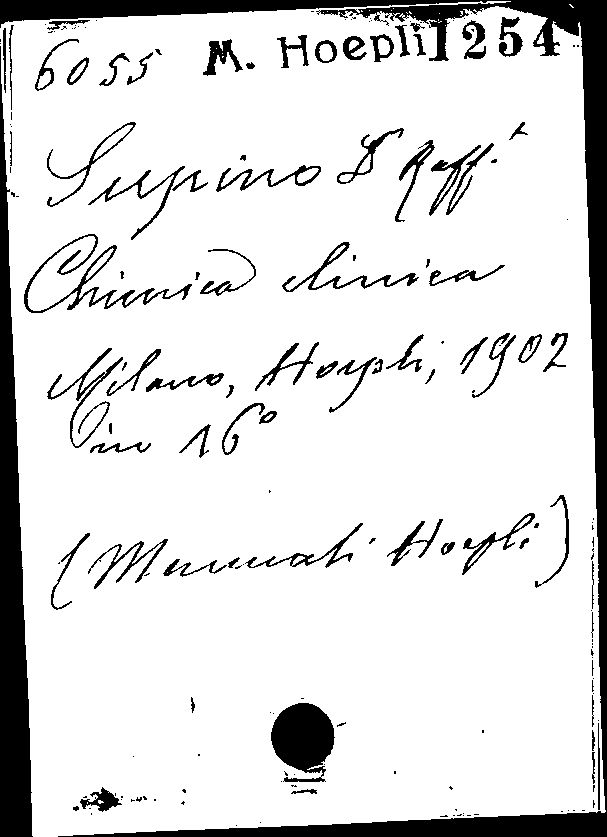 6055 M. Hoepli 1254
Supino Dr Raff.e
Chimica clinica
Milano, Hoepli, 1902
in 16°
(Manuali Hoepli)